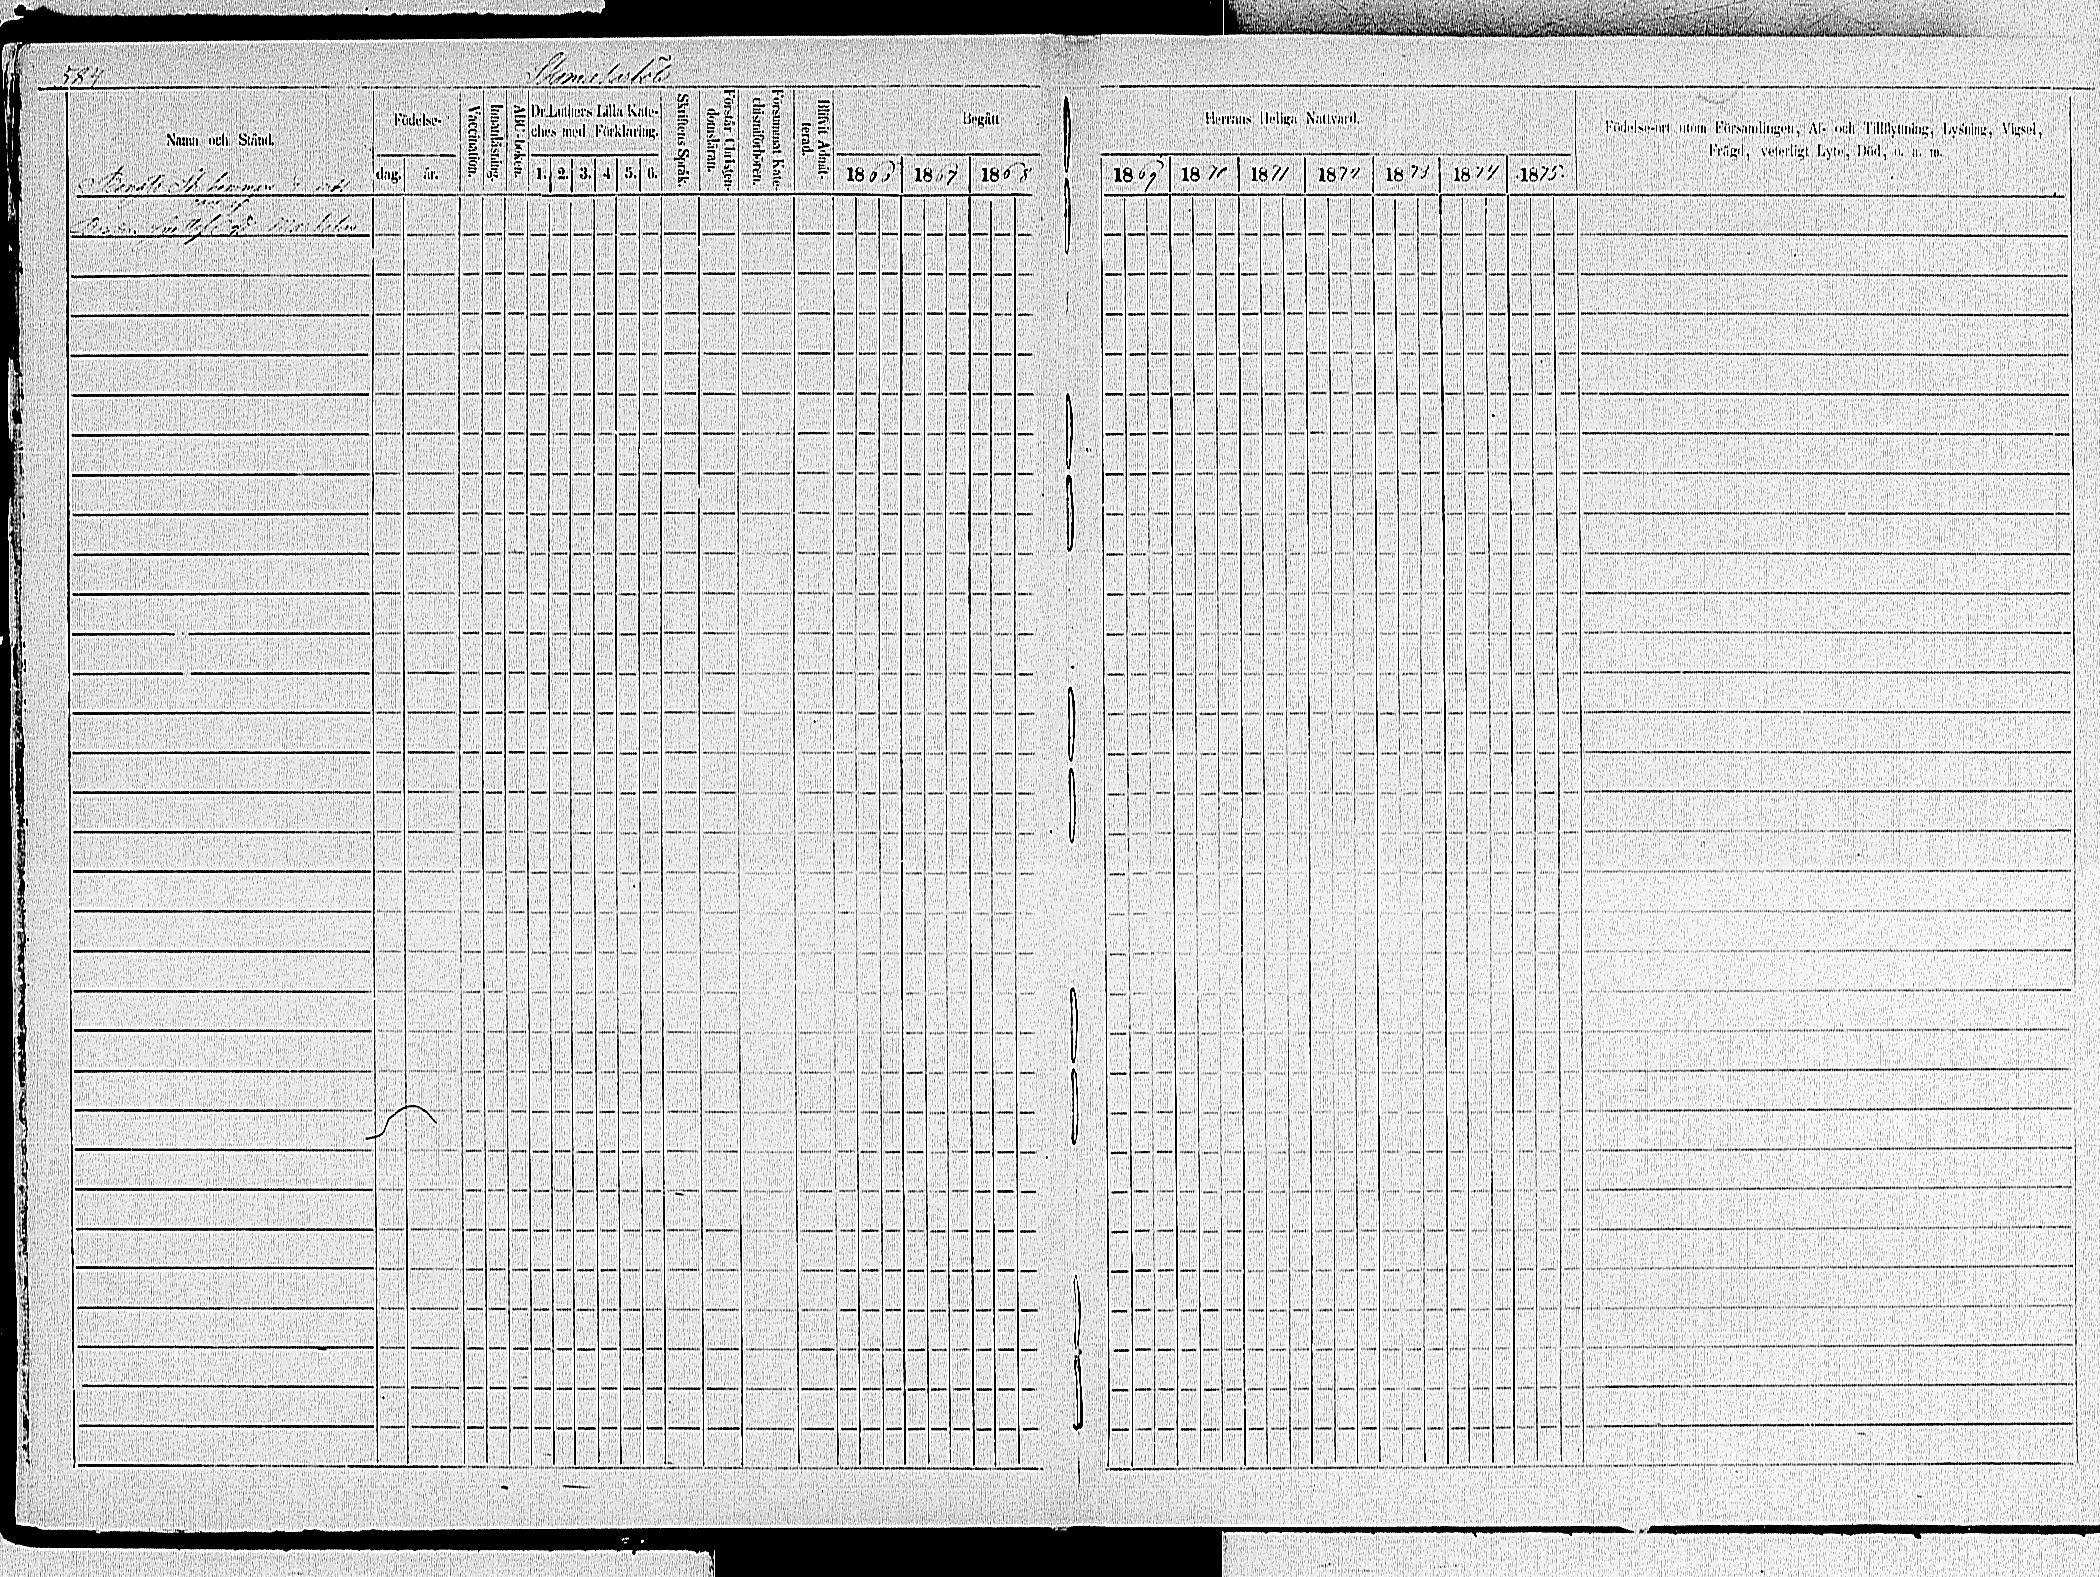 584
Namn och Stånd.
Födelse-
dag.
år.
Vaccination.
Innanläsning.
ABC-boken.
Dr. Luthers Lilla Kate-
ches med Förklaring.
1. 2. 3. 4 5. 6.
Skriftens Språk.
Förstår Christen-
domsläran.
Försummat Kate-
chismiförhören.
Blifvit Admit-
terad.
Begått
1866 1867 1868
Herrans Heliga Nattvard.
1869 1870 1871 1872 1873 1874 1875
Födelse-ort utom Församlingen, Af- och Tillflyttning, Lysning, Vigsel,
Frägd, veterligt Lyte, Död, o. s. m.